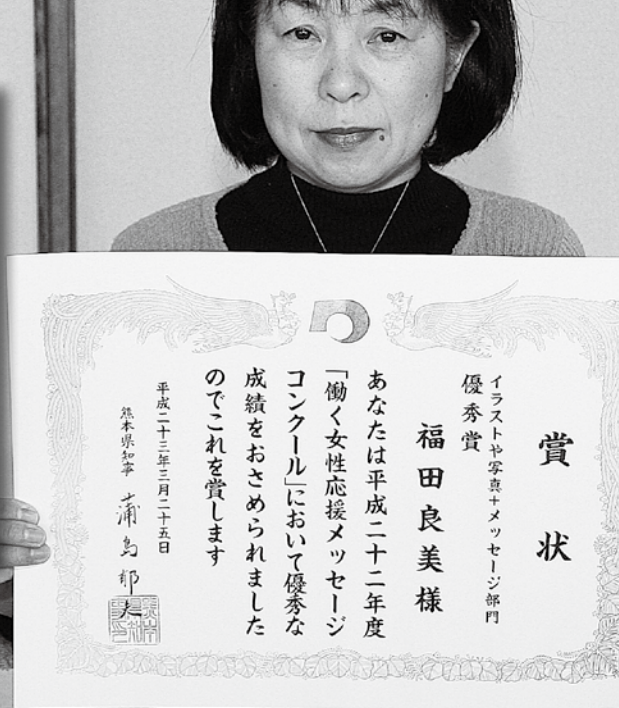 賞状
イラストや写真+メッセージ部門
優秀賞
福田良美様
あなたは平成二十二年度
「働く女性応援メッセージ
コンクール」において優秀な
成績をおさめられました
のでこれを賞します
平成二十三年三月二十五日
熊本県知事 蒲島郁夫